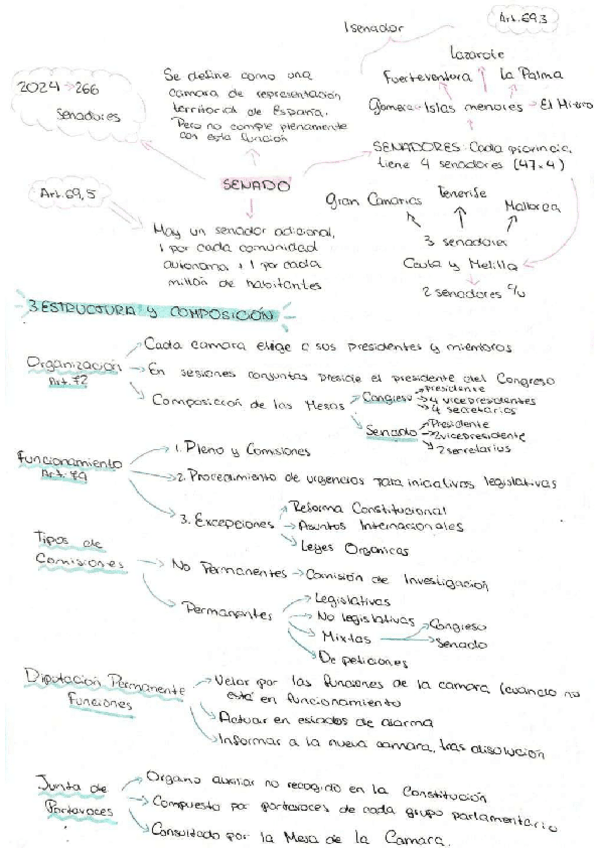 Art. 69.3
1 senador
Lazarote
Fuerteventura
La Palma
Gomera
Islas menores
El Hierro
2024 → 266
Senadores
Se define como una
camara de representación
territorial de España.
Pero no cumple plenamente
con esta función
SENADORES: Cada provincia,
tiene 4 senadores (47.4)
SENADO
Art. 69,5
Gran Canarias
Tenerife
Mallorca
3 senadores
Hay un senador adicional,
1 por cada comunidad
autonoma + 1 por cada
millón de habitantes
Ceuta y Melilla
2 senadores c/u
3. ESTRUCTURA Y COMPOSICIÓN
Organización
Art. 72
Cada camara elige a sus presidentes y miembros
En sesiones conjuntas preside el presidente del Congreso
Composición de las Mesas
Congreso
Presidente
4 vicepresidentes
4 secretarios
Senado
Presidente
2 vicepresidente
2 secretarios
Funcionamiento
1. Pleno y Comisiones
2. Procedimiento de urgencias para iniciativas legislativas
3. Excepciones
Reforma Constitucional
Asuntos Internacionales
Leyes Organicas
Tipos de
Comisiones
No Permanentes → Comisión de Investigación
Permanentes
Legislativas
No legislativas
Mixtas
Congreso
Senado
De peticiones
Diputación Permanente
Funciones
Velar por las funciones de la camara (cuando no
está en funcionamiento
Actuar en estados de alarma
Informar a la nueva camara, tras disolución
Junta de
Portavoces
Organo auxiliar no recogido en la Constitución
Compuesto por portavoces de cada grupo parlamentario
Consultado por la Mesa de la Camara.